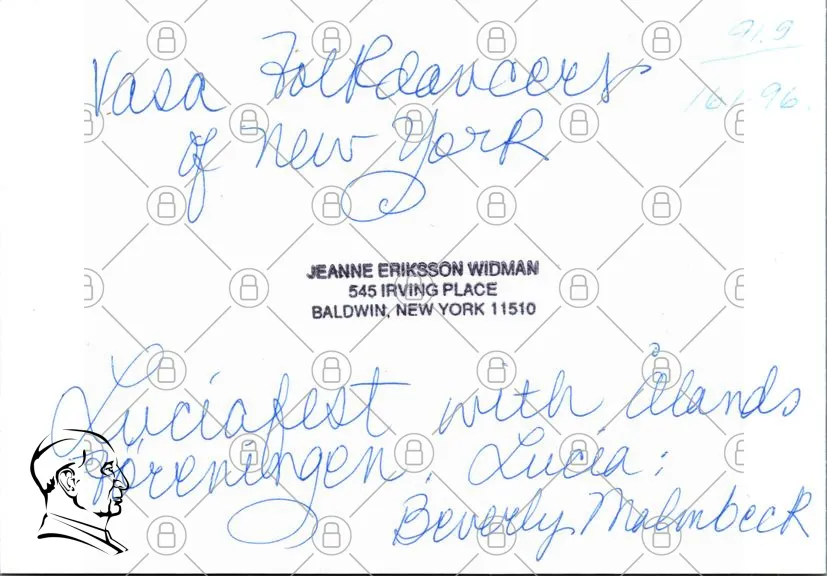 91.9
161.96.
Vasa Folkdancers
of New York
JEANNE ERIKSSON WIDMAN
545 IRVING PLACE
BALDWIN, NEW YORK 11510
Luciafest with Ålands
föreningen. Lucia:
Beverly Malmbeck